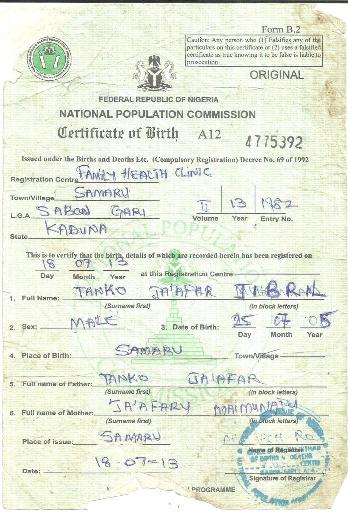 Form B.2
Caution: Any person who (1) Falsifies any of the
particulars on this certificate or (2) uses a falsified
certificate as true knowing it to be false is liable to
prosecution
ORIGINAL
FEDERAL REPUBLIC OF NIGERIA
NATIONAL POPULATION COMMISSION
Certificate of Birth A12 4775392
Issued under the Births and Deaths Etc. (Compulsory Registration) Decree No. 69 of 1992
Registration Centre FAMILY HEALTH CLINIC
Town/Village SAMARU II 13 1982
L.G.A SABON GARI Volume Year Entry No.
State KADUNA
This is to certify that the birth, details of which are recorded herein has been registered on
18 07 13 at this Registration Centre
Day Month Year
1. Full Name: TANKO JA'AFAR JIBRAL
(Surname first) (In block letters)
2. Sex: MALE 3. Date of Birth: 25 07 05
Day Month Year
4. Place of Birth: SAMARU Town/Village
5. Full name of Father: TANKO JA'AFAR
(Surname first) (In block letters)
6. Full name of Mother: JA'AFARU MAIMUNATU
(Surname first) (In block letters)
Place of issue: SAMARU
Name of Registrar
Date: 18-07-13
Signature of Registrar
PROGRAMME